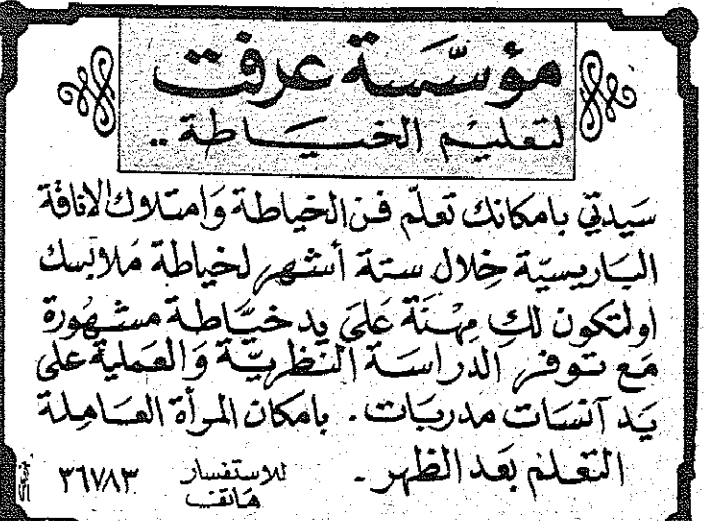 مؤسَّسة عرفت
لتعليم الخياطة ..
سَيدتي بامكانك تعلّم فن الخياطة وَامتلاك الاناقة
البَاريسيّة خِلال ستة أشهر لخياطة مَلابسك
اولتكون لكِ مِهْنَة عَلىَ يد خيَّاطة مشهُورة
مَع توفر الدراسَة النَّظريَّة وَالعَملية على
يَد آنسَات مدربَات . بامكان المرأة العَاملة
التعلم بعَد الظهر .
للاستفسار
هَاتف ٣٦٧٨٣